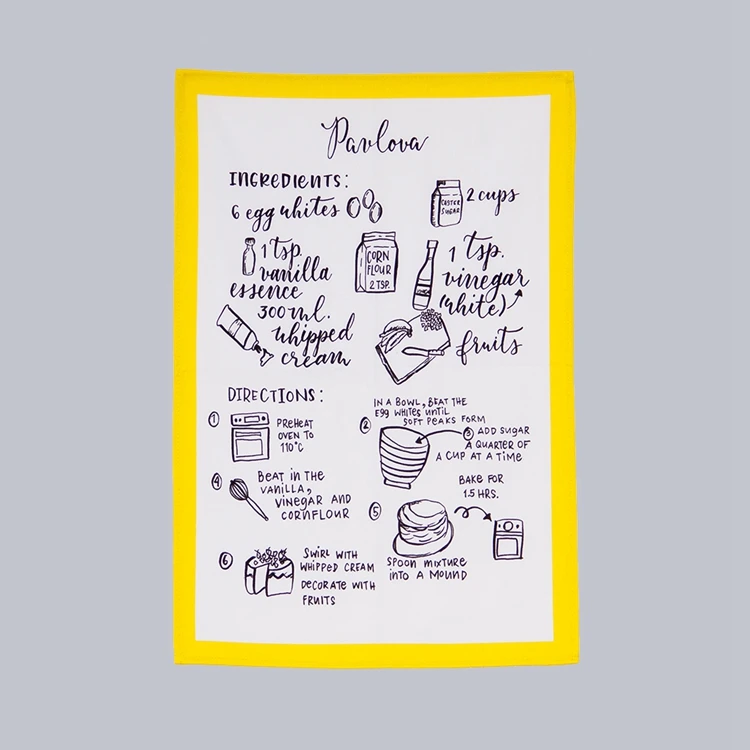 Pavlova
INGREDIENTS:
6 egg whites
CASTER
SUGAR
2 cups
1 tsp.
vanilla
essence
CORN
FLOUR
2 TSP.
1 tsp.
vinegar
(white)
300 ml.
whipped
cream
fruits
DIRECTIONS:
1
PREHEAT
OVEN TO
110°C
2
IN A BOWL, BEAT THE
EGG WHITES UNTIL
SOFT PEAKS FORM
3 ADD SUGAR
A QUARTER OF
A CUP AT A TIME
4
BEAT IN THE
VANILLA,
VINEGAR AND
CORNFLOUR
5
BAKE FOR
1.5 HRS.
SPOON MIXTURE
INTO A MOUND
6
SWIRL WITH
WHIPPED CREAM
DECORATE WITH
FRUITS